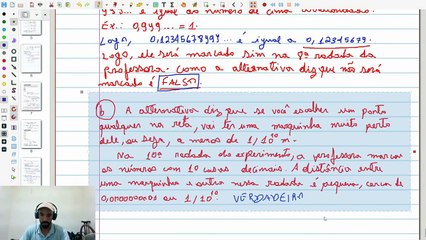 999... é igual ao número de cima
Ex.: 0,999... = 1.
Logo, 0,12345678999... é igual a 0,12345679.
Logo, ele será marcado sim na 8ª rodada da
professora. Como a alternativa diz que não será
marcado é FALSA
b) A alternativa diz que se você escolher um ponto
qualquer na reta, vai ter uma marquinha muito perto
dele, ou seja, a menos de 1/10¹⁰ m.
Na 10ª rodada do experimento, a professora marcou
os números com 10 casas decimais. A distância entre
uma marquinha e outra nessa rodada é pequena, cerca de
0,0000000001 ou 1/10¹⁰. VERDADEIRA